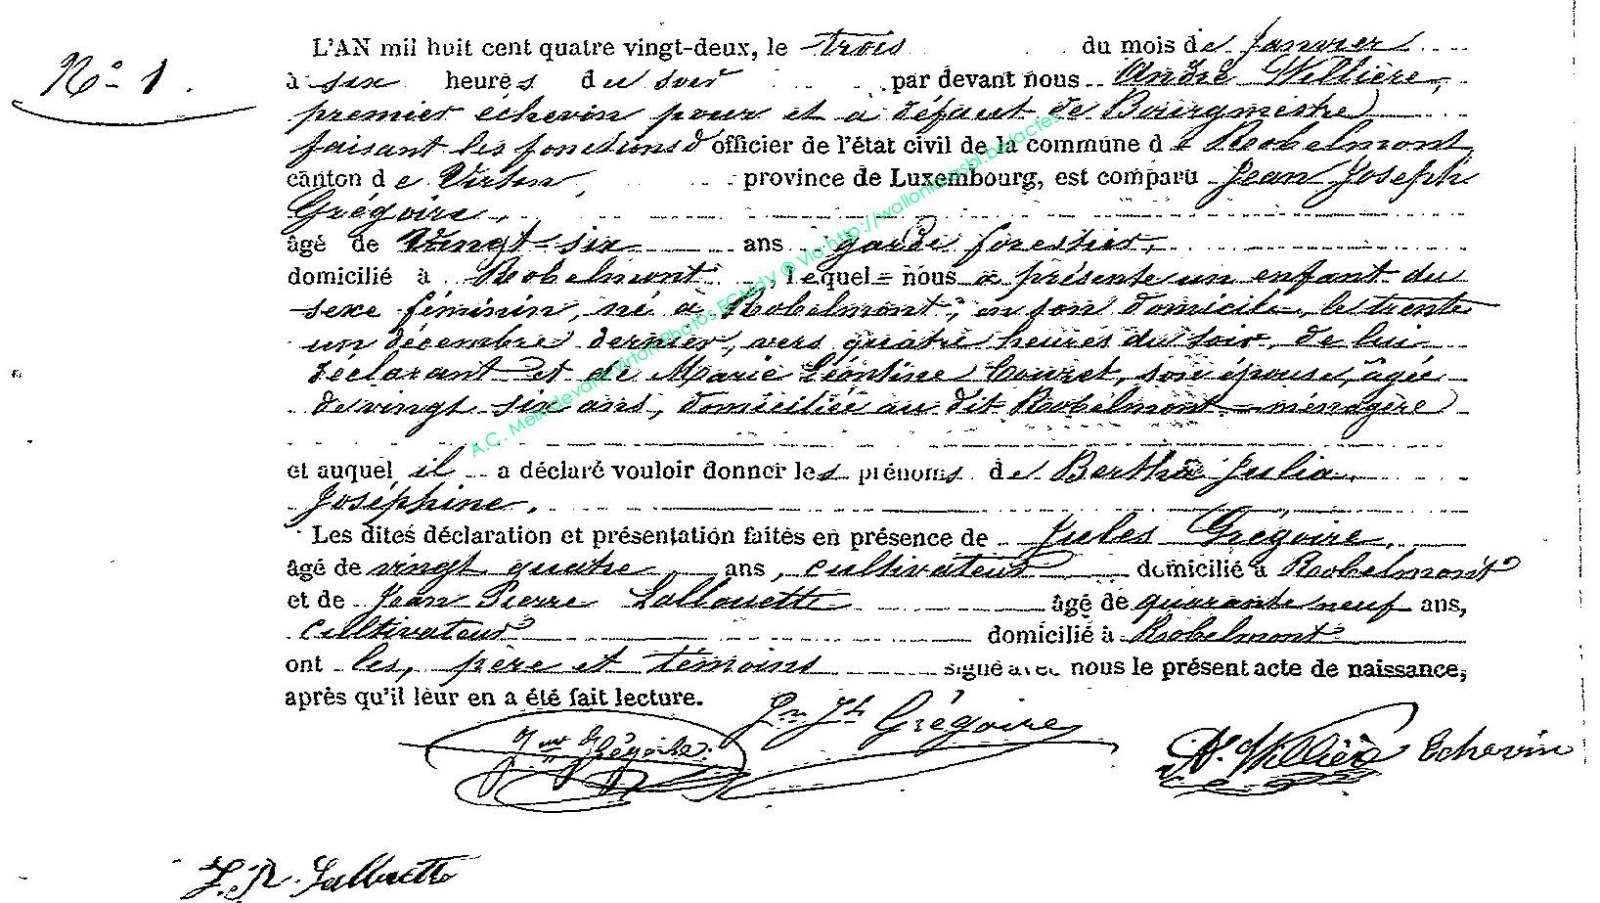 N° 1.
L'AN mil huit cent quatre vingt-deux, le trois du mois de Janvier
à six heures du soir par devant nous André Willière,
premier echevin pour et à défaut de Bourgmestre
faisant les fonctions d'officier de l'état civil de la commune de Robelmont,
canton de Virton, province de Luxembourg, est comparu Jean Joseph
Grégoire,
âgé de vingt-six ans garde forestier,
domicilié à Robelmont, lequel nous a présenté un enfant du
sexe féminin, né à Robelmont, en son domicile, le trente
un décembre dernier, vers quatre heures du soir, de lui
déclarant et de Marie Léontine Couret, son épouse, âgée
de vingt-six ans, domiciliée au dit Robelmont = ménagère
et auquel il a déclaré vouloir donner les prénoms de Bertha Julia
Joséphine.
Les dites déclaration et présentation faites en présence de Jules Grégoire,
âgé de vingt quatre ans, cultivateur domicilié à Robelmont
et de Jean Pierre Lallouette âgé de quarante neuf ans,
cultivateur domicilié à Robelmont
ont les, père et témoins signé avec nous le présent acte de naissance,
après qu'il leur en a été fait lecture.
Jn Jh Grégoire
Grégoire
A. Willière Echevin
J. P. Lallouette
A.C., Meix-devant-Virton Photos ECMdV © Via http://wallonia-asbl.be/actes